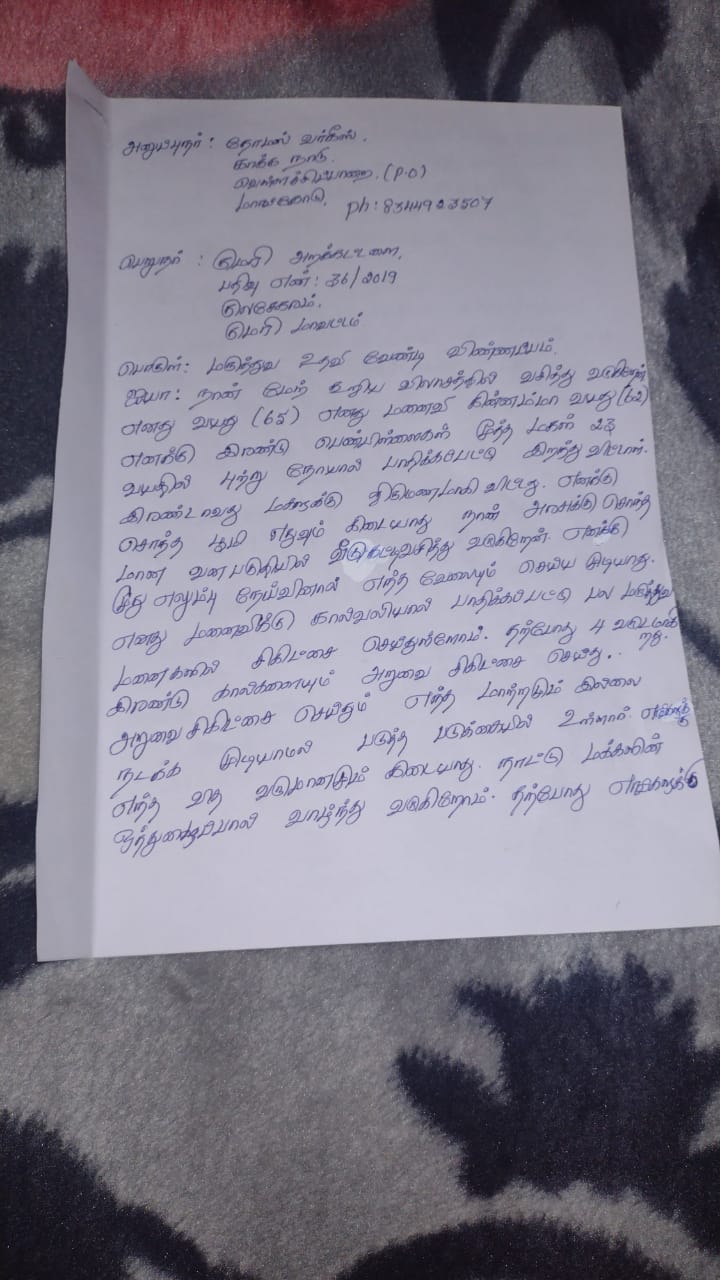 அனுப்புநர் : தோமஸ் வர்கீஸ்.
காக்க நாடு.
வெள்ளச்சிப்பாறை, (P.O)
மாங்கோடு, ph: 8344923507
பெறுநர் : குமரி அறக்கட்டளை,
பதிவு எண் : 36/2019
குலசேகரம்.
குமரி மாவட்டம்
பொருள்: மருத்துவ உதவி வேண்டி விண்ணப்பம்.
ஐயா : நான் மேற் கூறிய விலாசத்தில் வசித்து வருகிறேன்
எனது வயது (65) எனது மனைவி சின்னம்மா வயது (62)
எனக்கு இரண்டு பெண்பிள்ளைகள் மூத்த மகள் 23
வயதில் புற்று நோயால் பாதிக்கப்பட்டு இறந்து விட்டாள்.
இரண்டாவது மகளுக்கு திருமணமாகி விட்டது. எனக்கு
சொந்த பூமி எதுவும் கிடையாது நான் அரசுக்கு சொந்த
மான வன பகுதியில் வீடுகட்டிவசித்து வருகிறேன். எனக்கு
மூது எலும்பு நோய்வினால் எந்த வேலையும் செய்ய முடியாது.
எனது மனைவிக்கு கால்வலியால் பாதிக்கப்பட்டு பல மருத்துவ
மனைகளில் சிகிட்சை செய்துள்ளோம். தற்போது 4 வருடமாகி
இரண்டு கால்களையும் அறுவை சிகிட்சை செய்து..
அறுவை சிகிட்சை செய்தும் எந்த மாற்றமும் இல்லை
நடக்க முடியாமல் படுத்த படுக்கையில் உள்ளார். எனக்கு
எந்த வருமானமும் கிடையாது. நாட்டு மக்களின்
ஒத்துழைப்பால் வாழ்ந்து வருகிறோம். தற்போது எங்களுக்கு